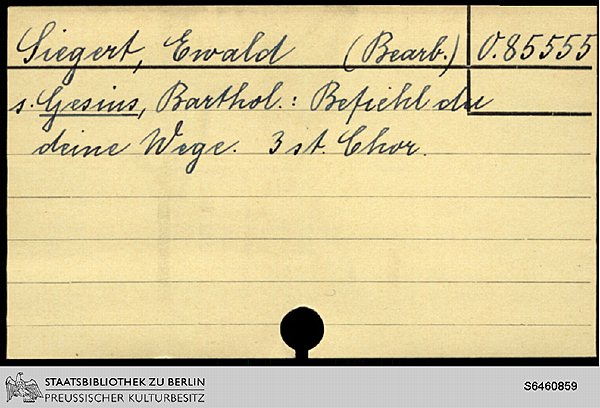 Siegert, Ewald (Bearb.) O.85555
s. Gesius, Barthol.: Befiehl du
deine Wege. 3 st. Chor.
STAATSBIBLIOTHEK ZU BERLIN
PREUSSISCHER KULTURBESITZ
S6460859